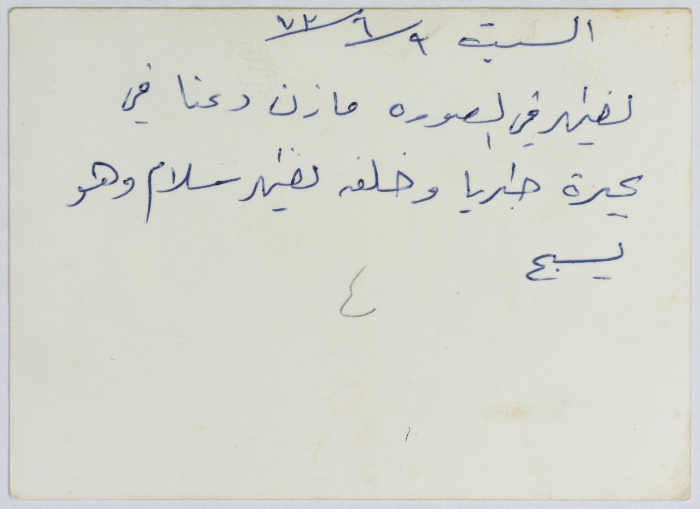 السبت ٩/٦/٧٣
يظهر في الصوره مازن دعنا في
بحيرة طبريا وخلفه يظهر سلام وهو
يسبح
٤